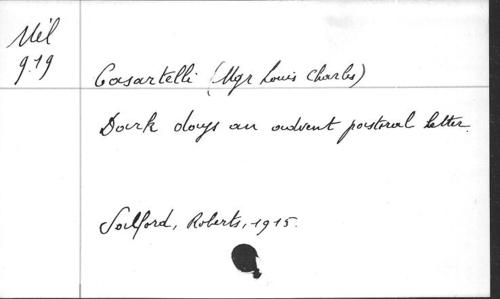 Mél
9.19
Casartelli (Mgr Louis Charles)
Dark days an advent pastoral letter.
Salford, Roberts, 1915.